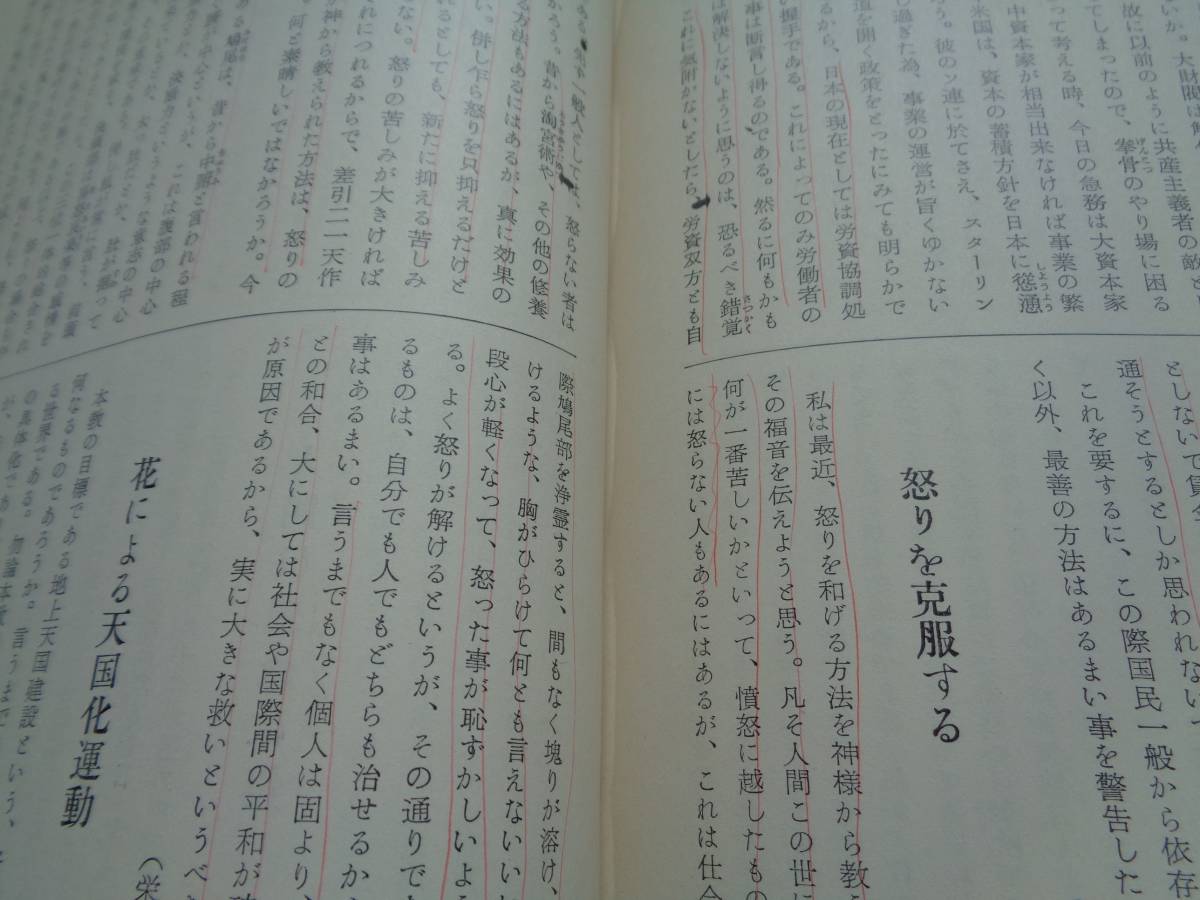 いか。大財閥は解
故に以前のように共産主義者の敵と
てしまったので、拳骨のやり場に困る
って考える時、今日の急務は大資本家
中資本家が相当出来なければ事業の繁
米国は、資本の蓄積方針を日本に慫慂
う。彼のソ連に於てさえ、スターリン
し過ぎた為、事業の運営が旨くゆかない
道を開く政策をとったにみても明らかで
るから、日本の現在としては労資協調処
い握手である。これによってのみ労働者の
事は断言し得るのである。然るに何もかも
は解決しないように思うのは、恐るべき錯覚
これに気附かないとしたら、労資双方とも自
としないで賃
通そうとするとしか思われない
これを要するに、この際国民一般から依存
く以外、最善の方法はあるまい事を警告した
怒りを克服する
私は最近、怒りを和げる方法を神様から教
その福音を伝えようと思う。凡そ人間この世に
何が一番苦しいかといって、憤怒に越したもの
には怒らない人もあるにはあるが、これは仕合
一般人としては、怒らない者は
かろう。昔から淘宮術や、その他の修養
る方法もあるにはあるが、真に効果の
い。併し乍ら怒りを只抑えるだけと
れるとしても、新たに抑える苦しみ
ない。怒りの苦しみが大きければ
それにつれるからで、差引二一天作
が神から教えられた方法は、怒りの
何と素晴しいではなかろうか。今
る鳩尾は、昔から中脘と言われる磁
これは腹部の中心
際鳩尾部を浄霊すると、間もなく塊りが溶け、
けるような、胸がひらけて何とも言えないい
段心が軽くなって、怒った事が恥ずかしいよう
る。よく怒りが解けるというが、その通りで
るものは、自分でも人でもどちらも治せるか
事はあるまい。言うまでもなく個人は固より、
との和合、大にしては社会や国際間の平和が
が原因であるから、実に大きな救いというべ
（栄
花による天国化運動
本教の目標である地上天国建設という、
何なるものであろうか。言うまで
る世界である。勿論本教
の具体化であ